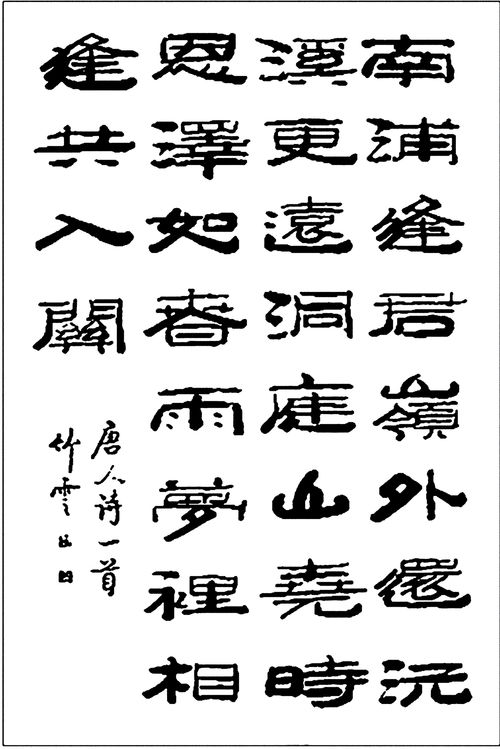 南浦逢君嶺外還沅
溪更遠洞庭山堯時
恩澤如春雨夢裡相
逢共入關
唐人诗一首
竹雲